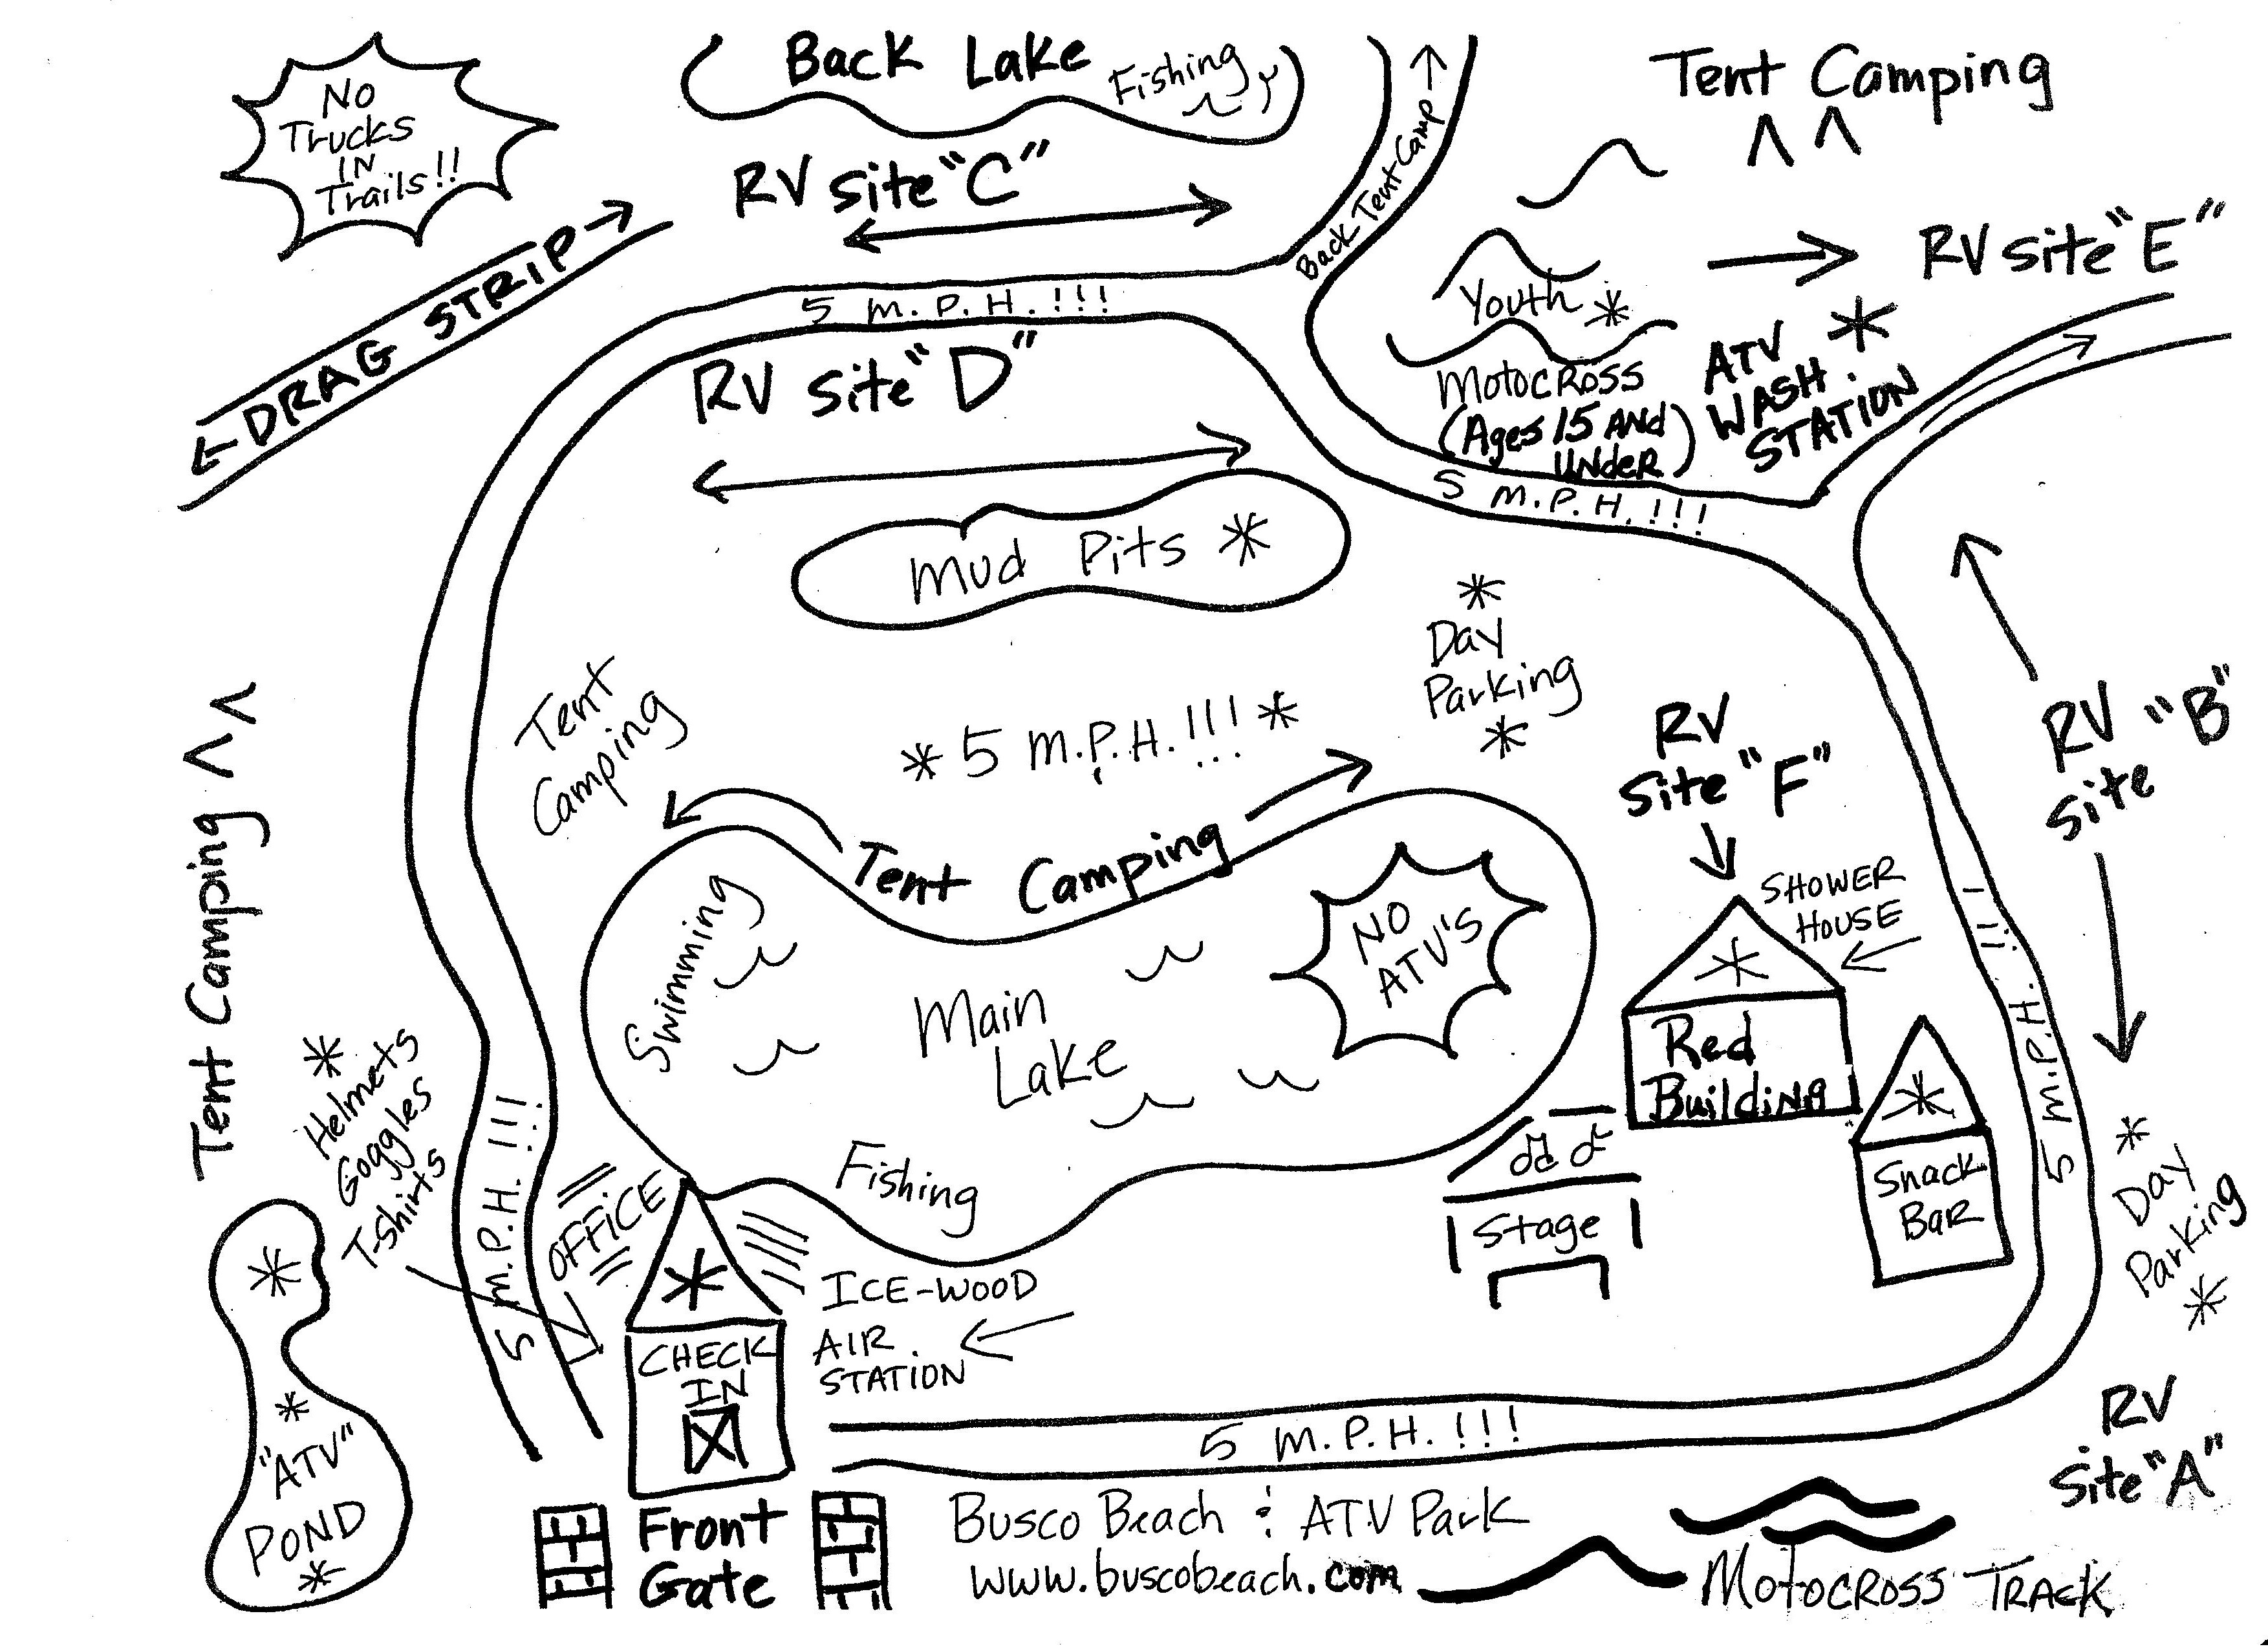 No
Trucks
IN
Trails!!
Back Lake
Fishing
Tent Camping
RV Site "C"
Back Tent Camp
RV Site "E"
DRAG STRIP
5 M.P.H.!!!
Youth
Motocross
(Ages 15 And
Under)
ATV
WASH
STATION
RV Site "D"
5 M.P.H.!!!
Mud Pits
Day
Parking
Tent
Camping
5 M.P.H.!!!
RV
Site "F"
RV
Site "B"
Tent Camping
Tent Camping
SHOWER
HOUSE
Swimming
NO
ATV'S
Main
Lake
Red
Building
5 M.P.H.!!!
Helmets
Goggles
T-Shirts
5 M.P.H.!!!
Fishing
Stage
Snack
Bar
Day
Parking
OFFICE
ICE-WOOD
AIR
STATION
CHECK
IN
"ATV"
POND
5 M.P.H.!!!
RV
Site "A"
Front
Gate
Busco Beach & ATV Park
www.buscobeach.com
Motocross Track